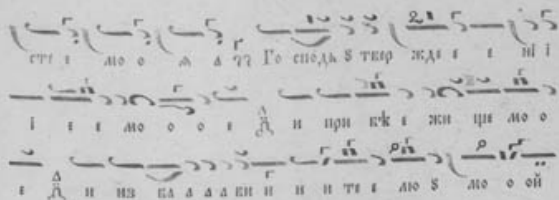 сте е мо о ѧ а Го сподь ꙋ твер жде е е нї і
і е е мо о о е и при бѣ е жи ще мо о
е и из ба а а а ви и и и те е лю ꙋ мо о ой